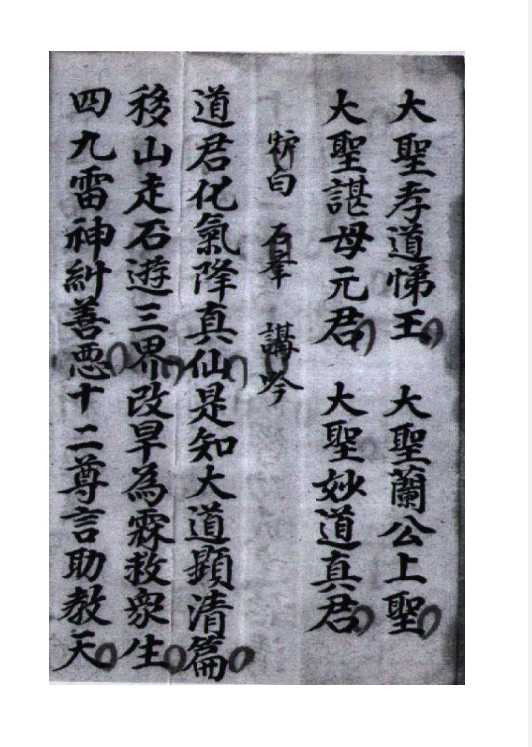 大聖孝道悌王 大聖蘭公上聖
大聖諶母元君 大聖妙道真君
白 石 講吟
道君化氣降真仙是知大道顕清篇
移山走石遊三界改旱為霖救衆生
四九雷神糾善悪十二尊言助教天